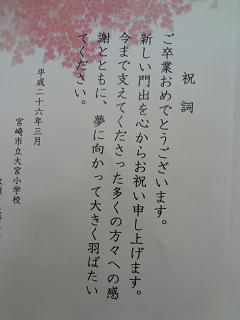 祝詞
ご卒業おめでとうございます。
新しい門出を心からお祝い申し上げます。
今まで支えてくださった多くの方々への感
謝とともに、夢に向かって大きく羽ばたい
てください。
平成二十六年三月
宮崎市立大宮小学校